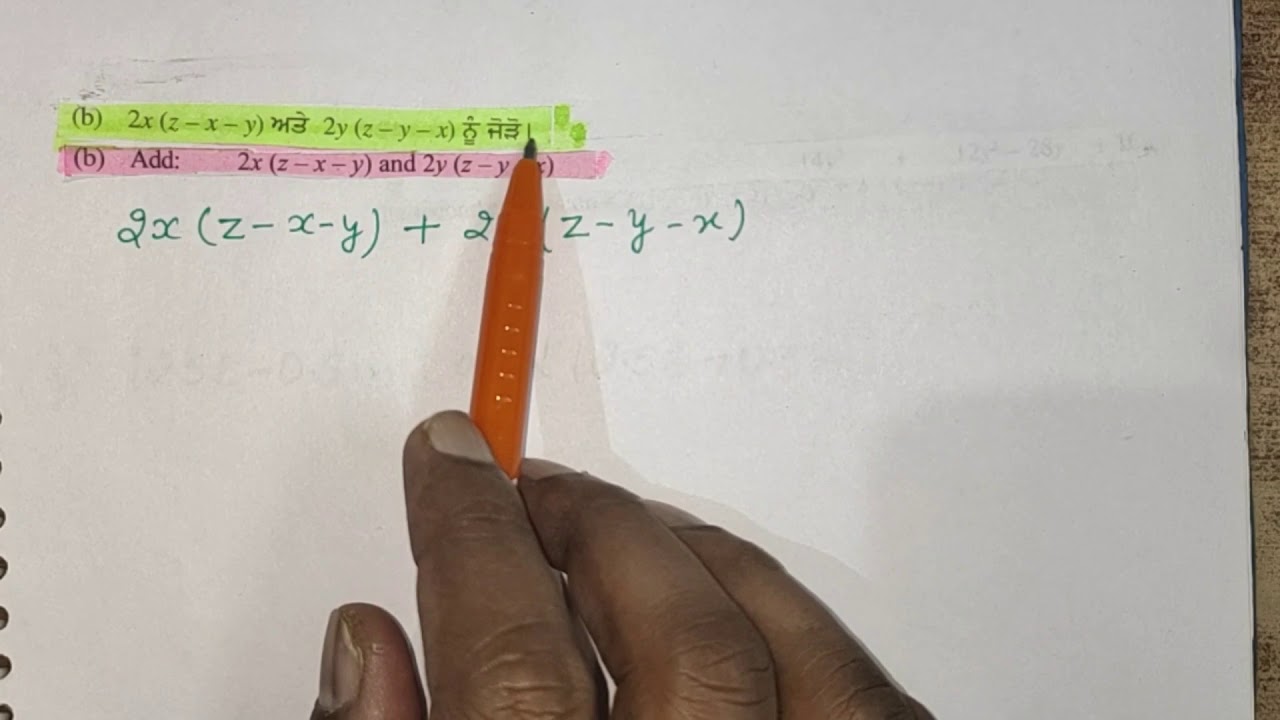 (b) 2x (z – x – y) ਅਤੇ 2y (z – y – x) ਨੂੰ ਜੋੜੋ।
(b) Add: 2x (z – x – y) and 2y (z – y x)
2x (z - x - y) + 2 (z - y - x)